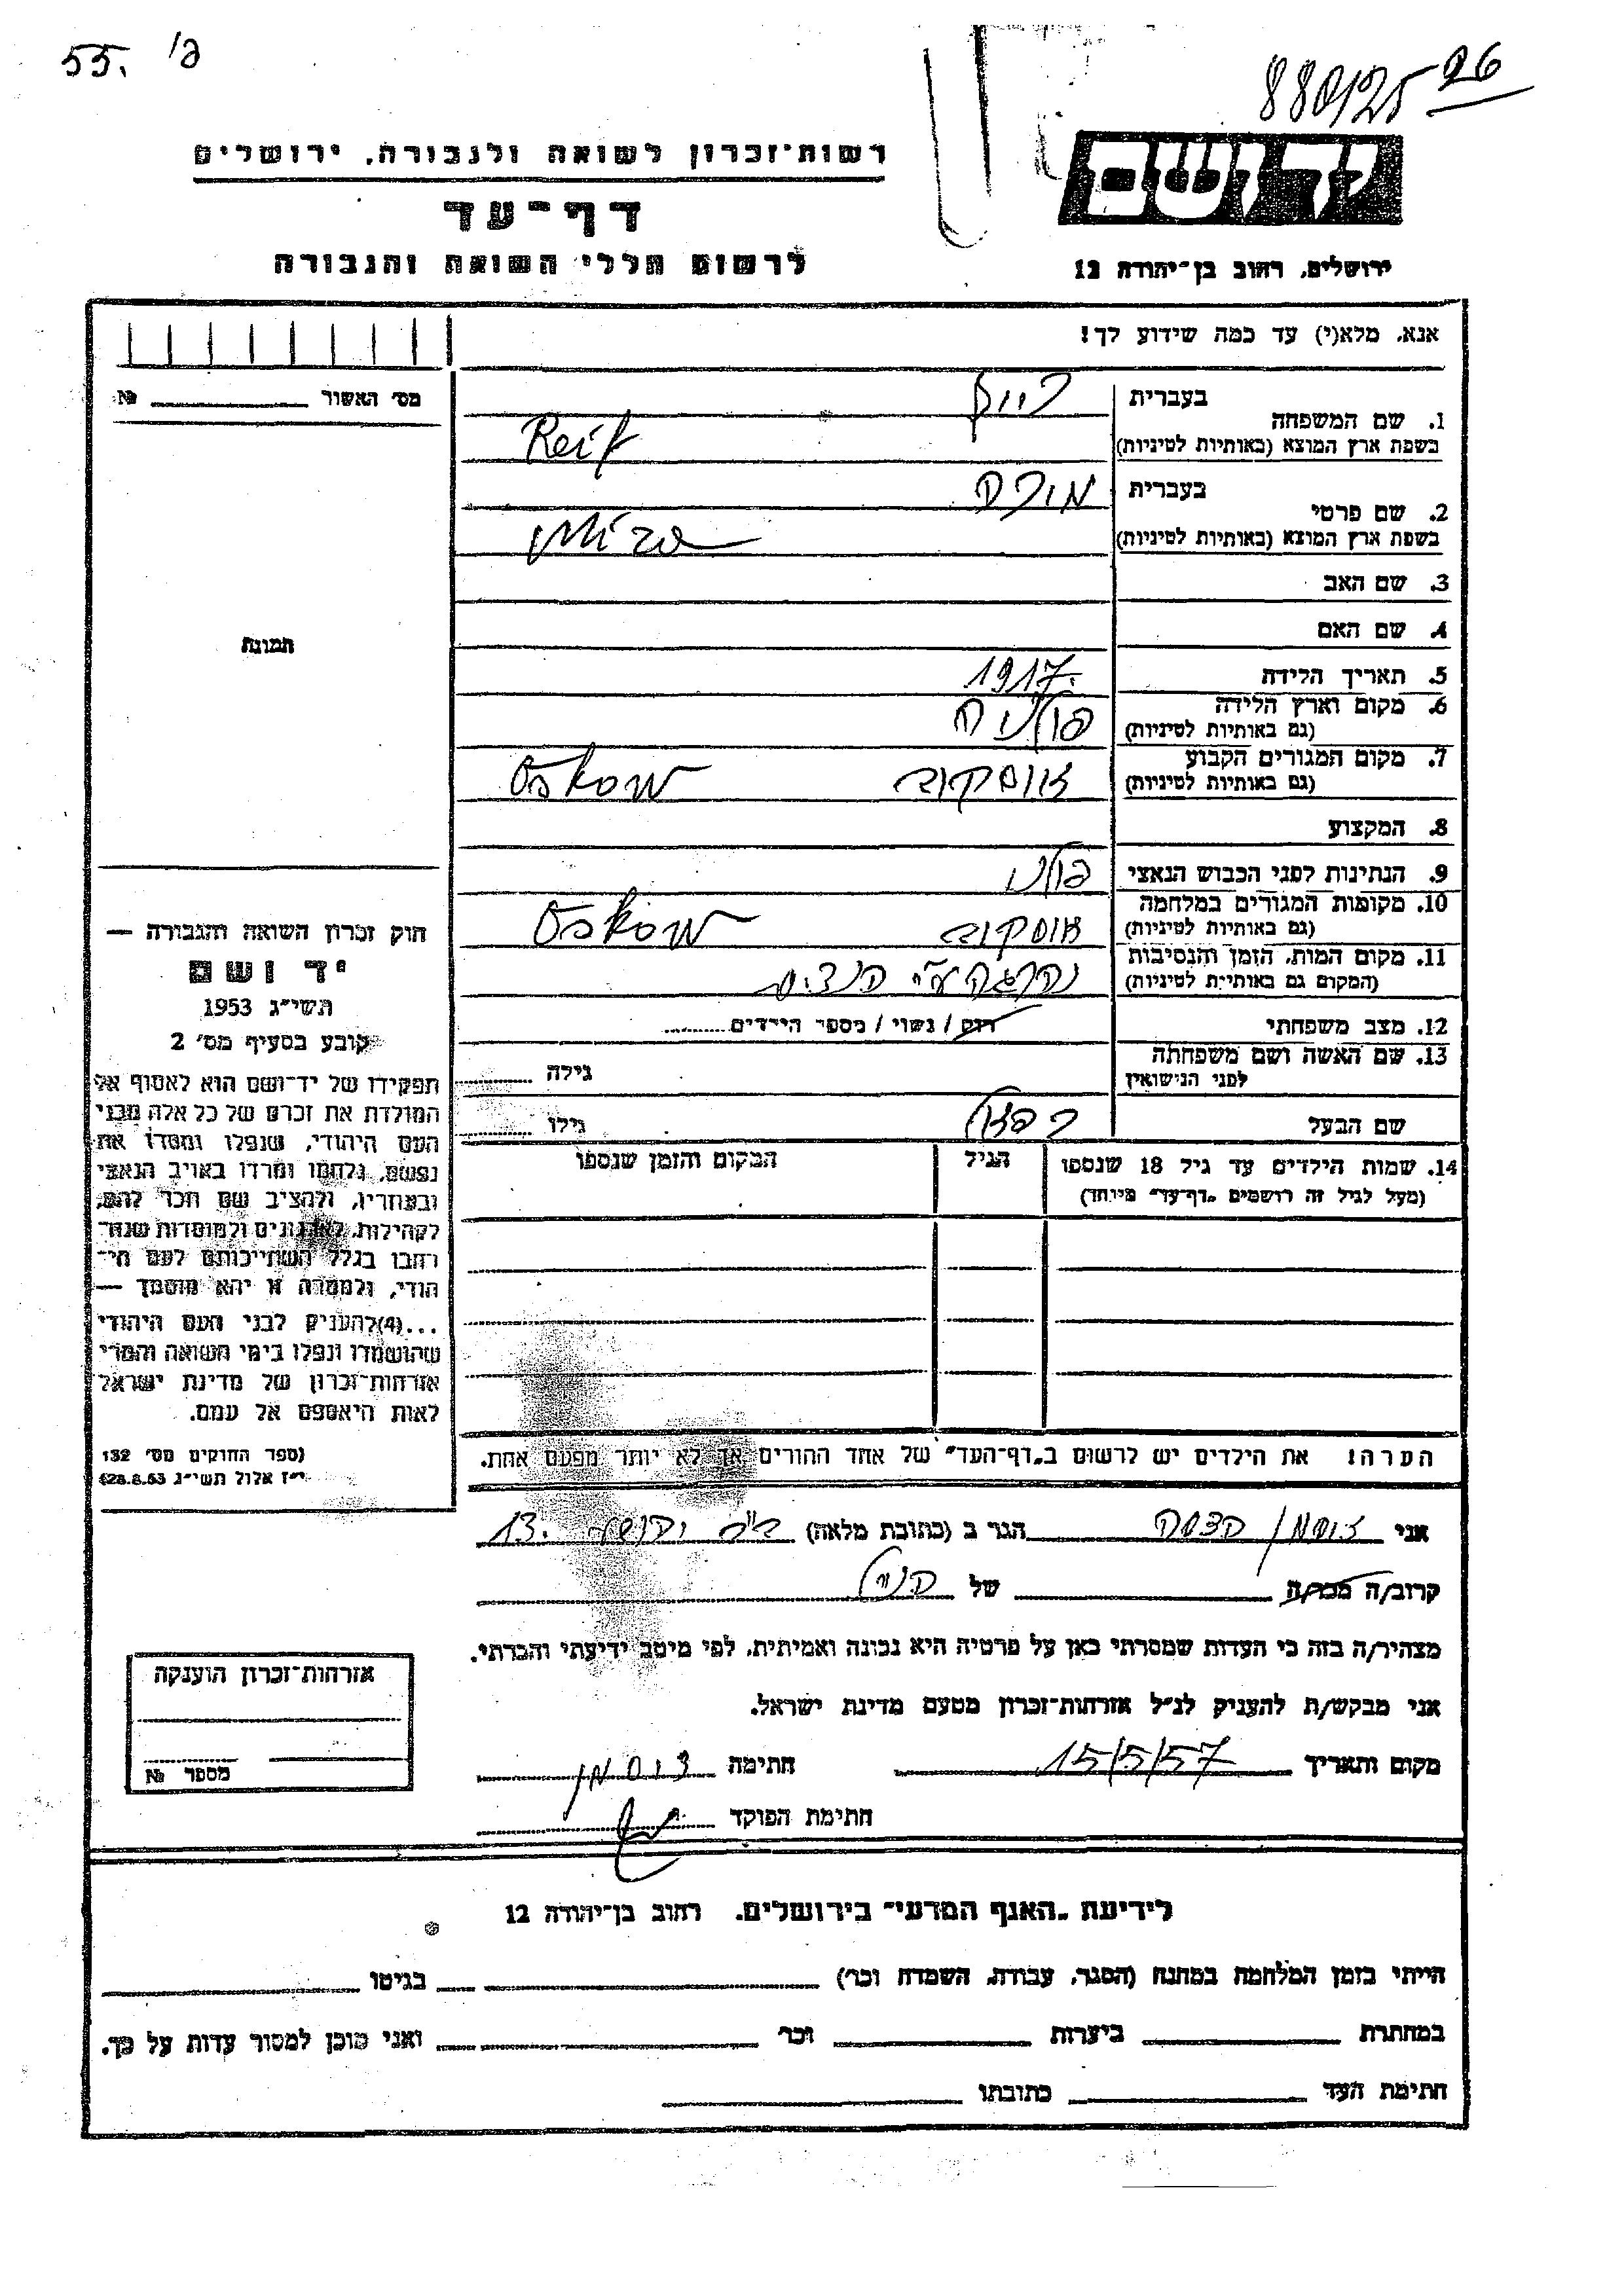 55. 'ג
26
880125
רשות־זכרון לשואה ולגבורה, ירושלים
דף־עד
לרשום חללי השואה והגבורה
יד ושם
ירושלים, רחוב בן־יהודה 12
אנא, מלא(י) עד כמה שידוע לך!
מס׳ האשור № 
1. שם המשפחה
בעברית רייף
בשפת ארץ המוצא (באותיות לטיניות) Reif
2. שם פרטי
בעברית מירה
בשפת ארץ המוצא (באותיות לטיניות) Mira
3. שם האב
4. שם האם
5. תאריך הלידה 1917.
6. מקום וארץ הלידה
(גם באותיות לטיניות) פולניה
7. מקום המגורים הקבוע
(גם באותיות לטיניות) אוסקוב Oskow
8. המקצוע
9. הנתינות לפני הכבוש הנאצי פולני
10. מקומות המגורים במלחמה
(גם באותיות לטיניות) אוסקוב Oskow
11. מקום המות, הזמן והנסיבות
(המקום גם באותיות לטיניות) נהרגה ע״י הנצים
12. מצב משפחתי רוק / נשוי / מספר הילדים
13. שם האשה ושם משפחתה
לפני הנישואין גילה
שם הבעל גילו
14. שמות הילדים עד גיל 18 שנספו הגיל המקום והזמן שנספו
(מעל לגיל זה רושמים „דף־עד״ מיוחד)
הערה: את הילדים יש לרשום ב„דף־העד״ של אחד ההורים אך לא יותר מפעם אחת.
תמונה
חוק זכרון השואה והגבורה —
יד ושם
תשי״ג 1953
קובע בסעיף מס׳ 2
תפקידו של יד־ושם הוא לאסוף אל
המולדת את זכרם של כל אלה מבני
העם היהודי, שנפלו ומסרו את
נפשם, נלחמו ומרדו באויב הנאצי
ובעוזריו, ולהציב שם וזכר להם,
לקהילות, לארגונים ולמוסדות שנח־
רבו בגלל השתייכותם לעם הי־
הודי, ולמטרה זו יהא מוסמך —
...(4) להעניק לבני העם היהודי
שהושמדו ונפלו בימי השואה והמרי
אזרחות־זכרון של מדינת ישראל
לאות היאספם אל עמם.
(ספר החוקים מס׳ 132
י״ז אלול תשי״ג 28.8.53)
אני זוסמן הדסה הגר ב (כתובת מלאה) 13.
קרוב/ה מכר/ה של הנ״ל
מצהיר/ה בזה כי העדות שמסרתי כאן על פרטיה היא נכונה ואמיתית, לפי מיטב ידיעתי והכרתי.
אני מבקש/ת להעניק לנ״ל אזרחות־זכרון מטעם מדינת ישראל.
מקום ותאריך 15/5/57 חתימה זוסמן
חתימת הפוקד
אזרחות־זכרון הוענקה
מספר №
לידיעת „האגף המדעי״ בירושלים, רחוב בן־יהודה 12
הייתי בזמן המלחמה במחנה (הסגר, עבודה, השמדה וכו׳) בגיטו
במחתרת ביערות וכו׳ ואני מוכן למסור עדות על כך.
חתימת העד כתובתו